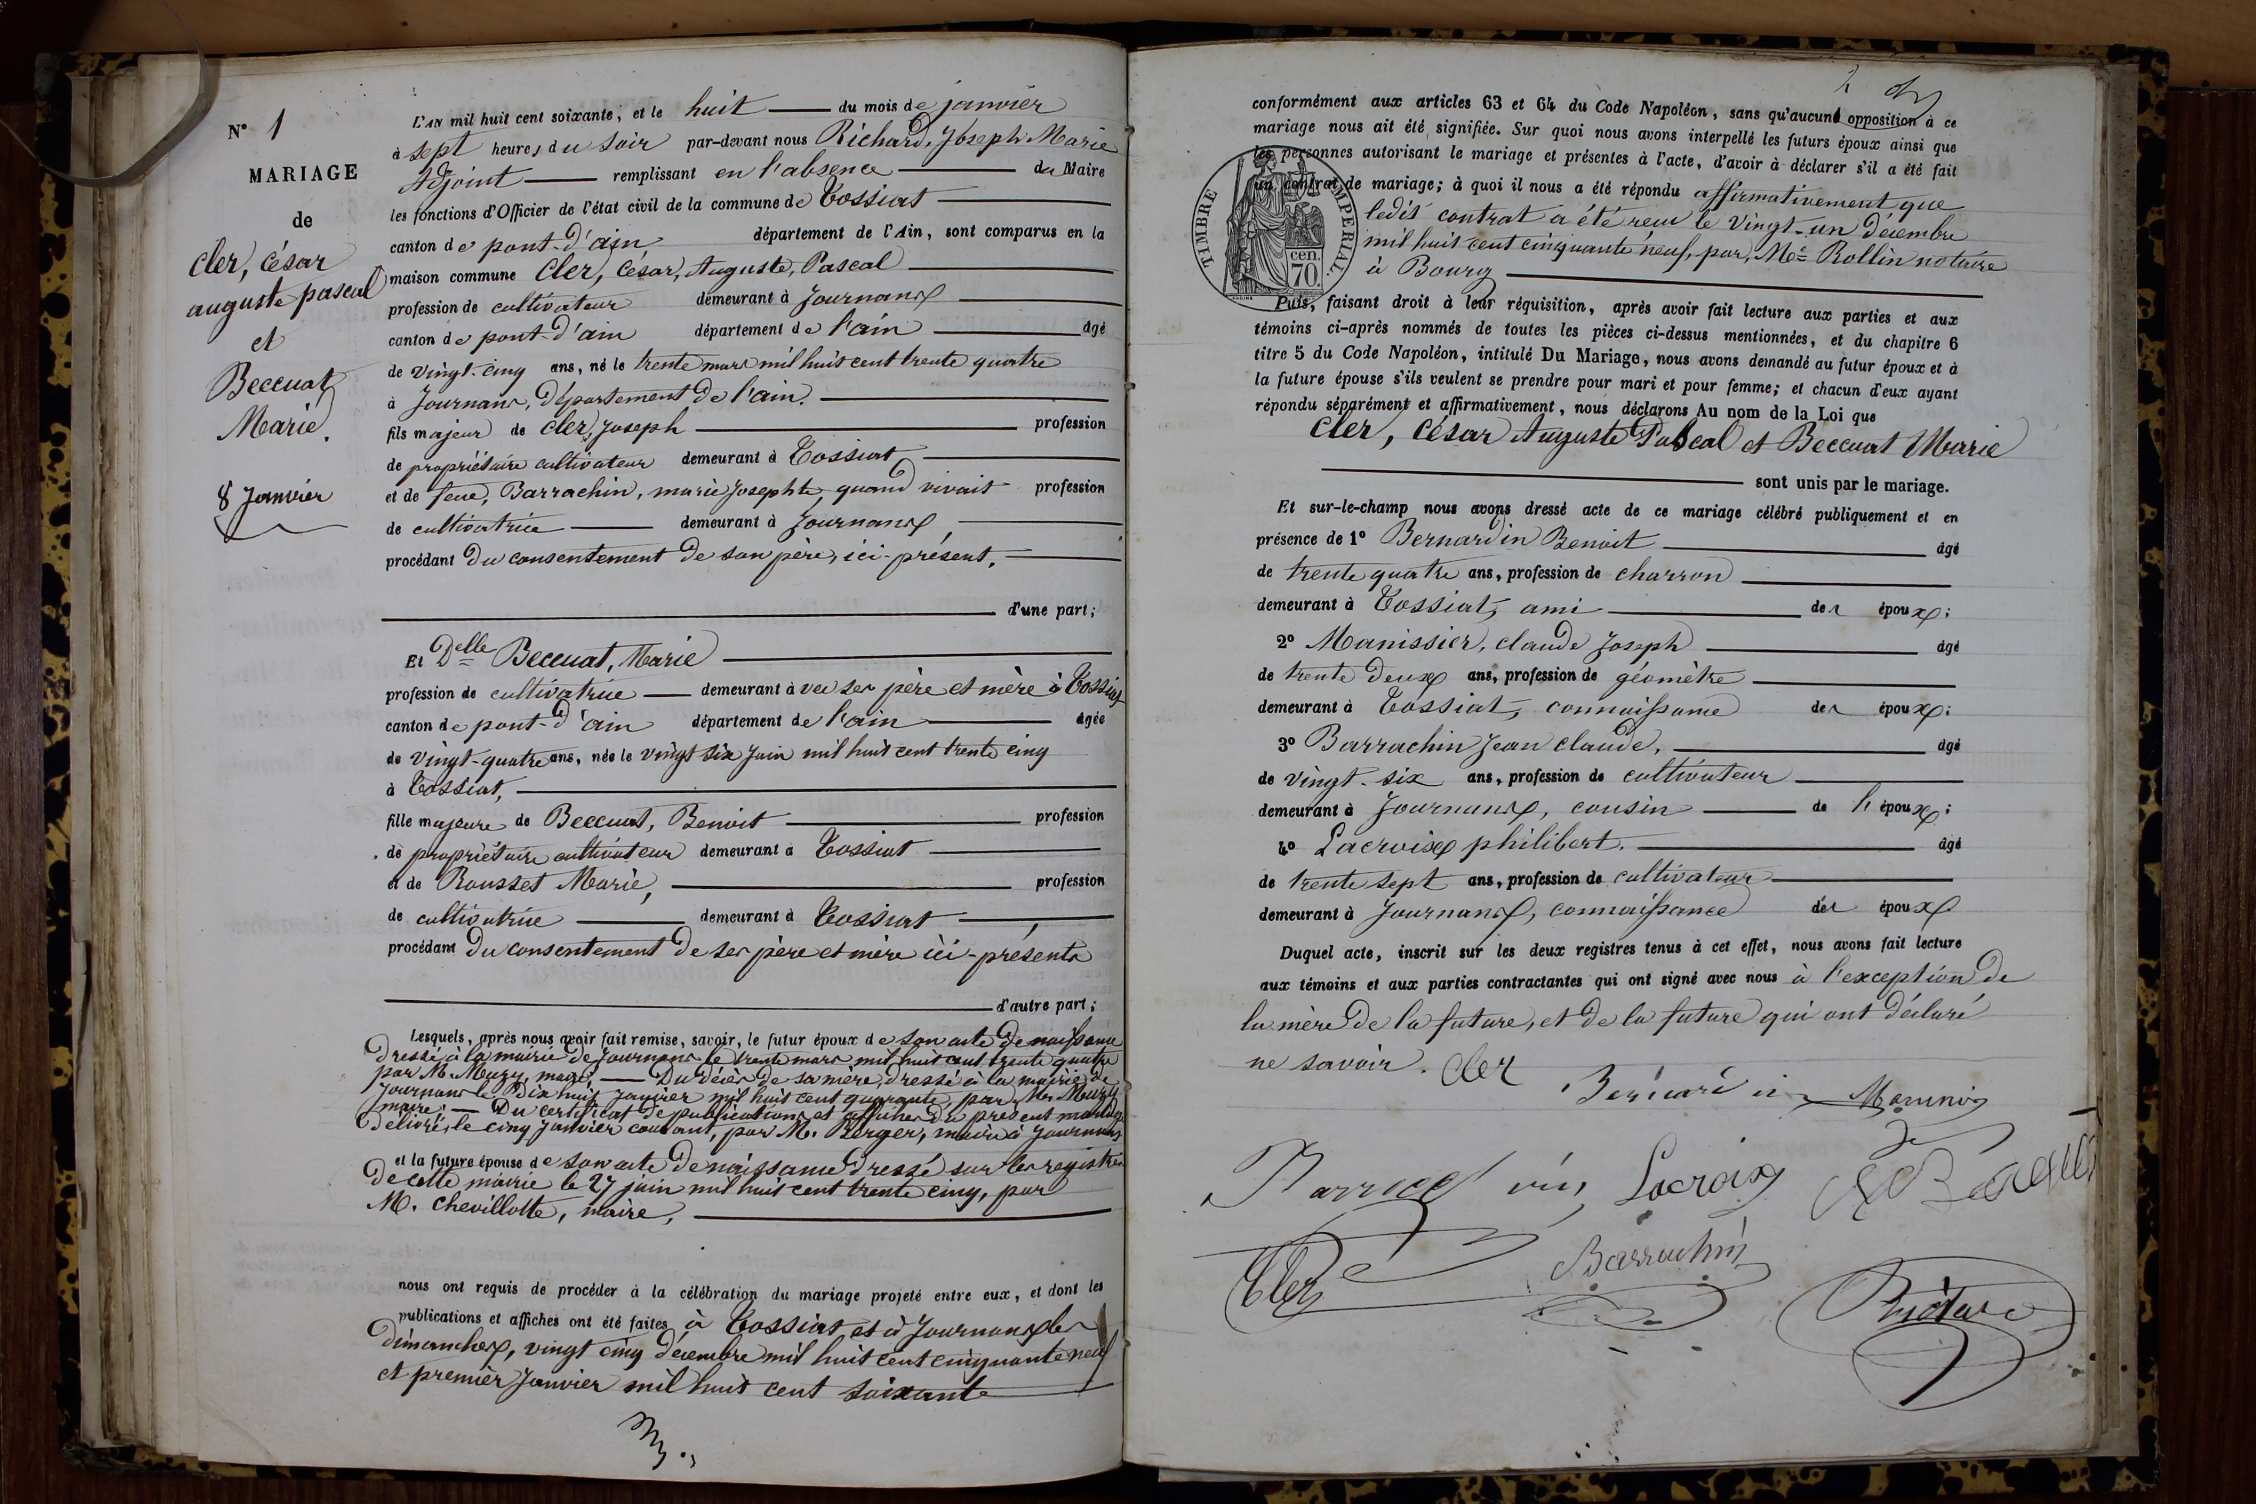 N° 1
MARIAGE
de
Cler, César
auguste pascal
et
Beccuat
Marie.
8 Janvier
L'AN mil huit cent soixante, et le huit du mois de janvier
à sept heures du soir par-devant nous Richard, Joseph Marie
Adjoint remplissant en l'absence du Maire
les fonctions d'Officier de l'état civil de la commune de Tossiat
canton de pont-d'ain département de l'Ain, sont comparus en la
maison commune Cler, César, Auguste, Pascal
profession de cultivateur demeurant à Journans
canton de pont-d'ain département de l'ain âgé
de vingt-cinq ans, né le trente mars mil huit cent trente quatre
à Journans, département de l'ain.
fils majeur de Cler, Joseph profession
de propriétaire cultivateur demeurant à Tossiat
et de feue, Barrachin, marie Josephte, quand vivait profession
de cultivatrice demeurant à Journans,
procédant du consentement de son père, ici-présent,
d'une part;
Et Delle Beccuat, Marie
profession de cultivatrice demeurant à vec ses père et mère à Tossiat
canton de pont-d'ain département de l'ain âgée
de vingt-quatre ans, née le vingt six Juin mil huit cent trente cinq
à Tossiat,
fille majeure de Beccuat, Benoit profession
de propriétaire cultivateur demeurant à Tossiat
et de Rousset Marie, profession
de cultivatrice demeurant à Tossiat,
procédant du consentement de ses père et mère ici-présents
d'autre part;
Lesquels, après nous avoir fait remise, savoir, le futur époux de son acte de naissance
dressé à la mairie de Journans le trente mars mil huit cent trente quatre
par M. Muzy, maire; Du décès de sa mère, dressé à la mairie de
Journans le Dix huit janvier mil huit cent quarante, par M. Muzy
maire; Du certificat de publications et affiches du présent mariage
délivré, le cinq janvier courant, par M. Berger, maire à Journans
et la future épouse de son acte de naissance dressé sur les registres
de cette mairie le 27 juin mil huit cent trente cinq, par
M. Chevillotte, maire,
nous ont requis de procéder à la célébration du mariage projeté entre eux, et dont les
publications et affiches ont été faites à Tossiat et à Journans les
dimanches, vingt cinq décembre mil huit cent cinquante neuf
et premier Janvier mil huit cent soixante
2
conformément aux articles 63 et 64 du Code Napoléon, sans qu'aucune opposition à ce
mariage nous ait été signifiée. Sur quoi nous avons interpellé les futurs époux ainsi que
les personnes autorisant le mariage et présentes à l'acte, d'avoir à déclarer s'il a été fait
un contrat de mariage; à quoi il nous a été répondu affirmativement que
ledit contrat a été reçu le vingt-un décembre
mil huit cent cinquante neuf, par, Me Rollin notaire
à Bourg
TIMBRE IMPERIAL.
70 cen.
Puis, faisant droit à leur réquisition, après avoir fait lecture aux parties et aux
témoins ci-après nommés de toutes les pièces ci-dessus mentionnées, et du chapitre 6
titre 5 du Code Napoléon, intitulé Du Mariage, nous avons demandé au futur époux et à
la future épouse s'ils veulent se prendre pour mari et pour femme; et chacun d'eux ayant
répondu séparément et affirmativement, nous déclarons Au nom de la Loi que
Cler, César Auguste Pascal et Beccuat Marie
sont unis par le mariage.
Et sur-le-champ nous avons dressé acte de ce mariage célébré publiquement et en
présence de 1° Bernardin Benoit âgé
de trente quatre ans, profession de charron
demeurant à Tossiat, ami des époux;
2° Manissier, claude Joseph âgé
de trente deux ans, profession de géomètre
demeurant à Tossiat, connaissance des époux;
3° Barrachin Jean claude, âgé
de vingt-six ans, profession de cultivateur
demeurant à Journans, cousin de l'époux;
4° Lacroix philibert. âgé
de trente sept ans, profession de cultivateur
demeurant à Journans, connaissance des époux
Duquel acte, inscrit sur les deux registres tenus à cet effet, nous avons fait lecture
aux témoins et aux parties contractantes qui ont signé avec nous à l'exception de
la mère de la future, et de la future qui ont déclaré
ne savoir. Cler
Lacroix
Cler
Barrachin